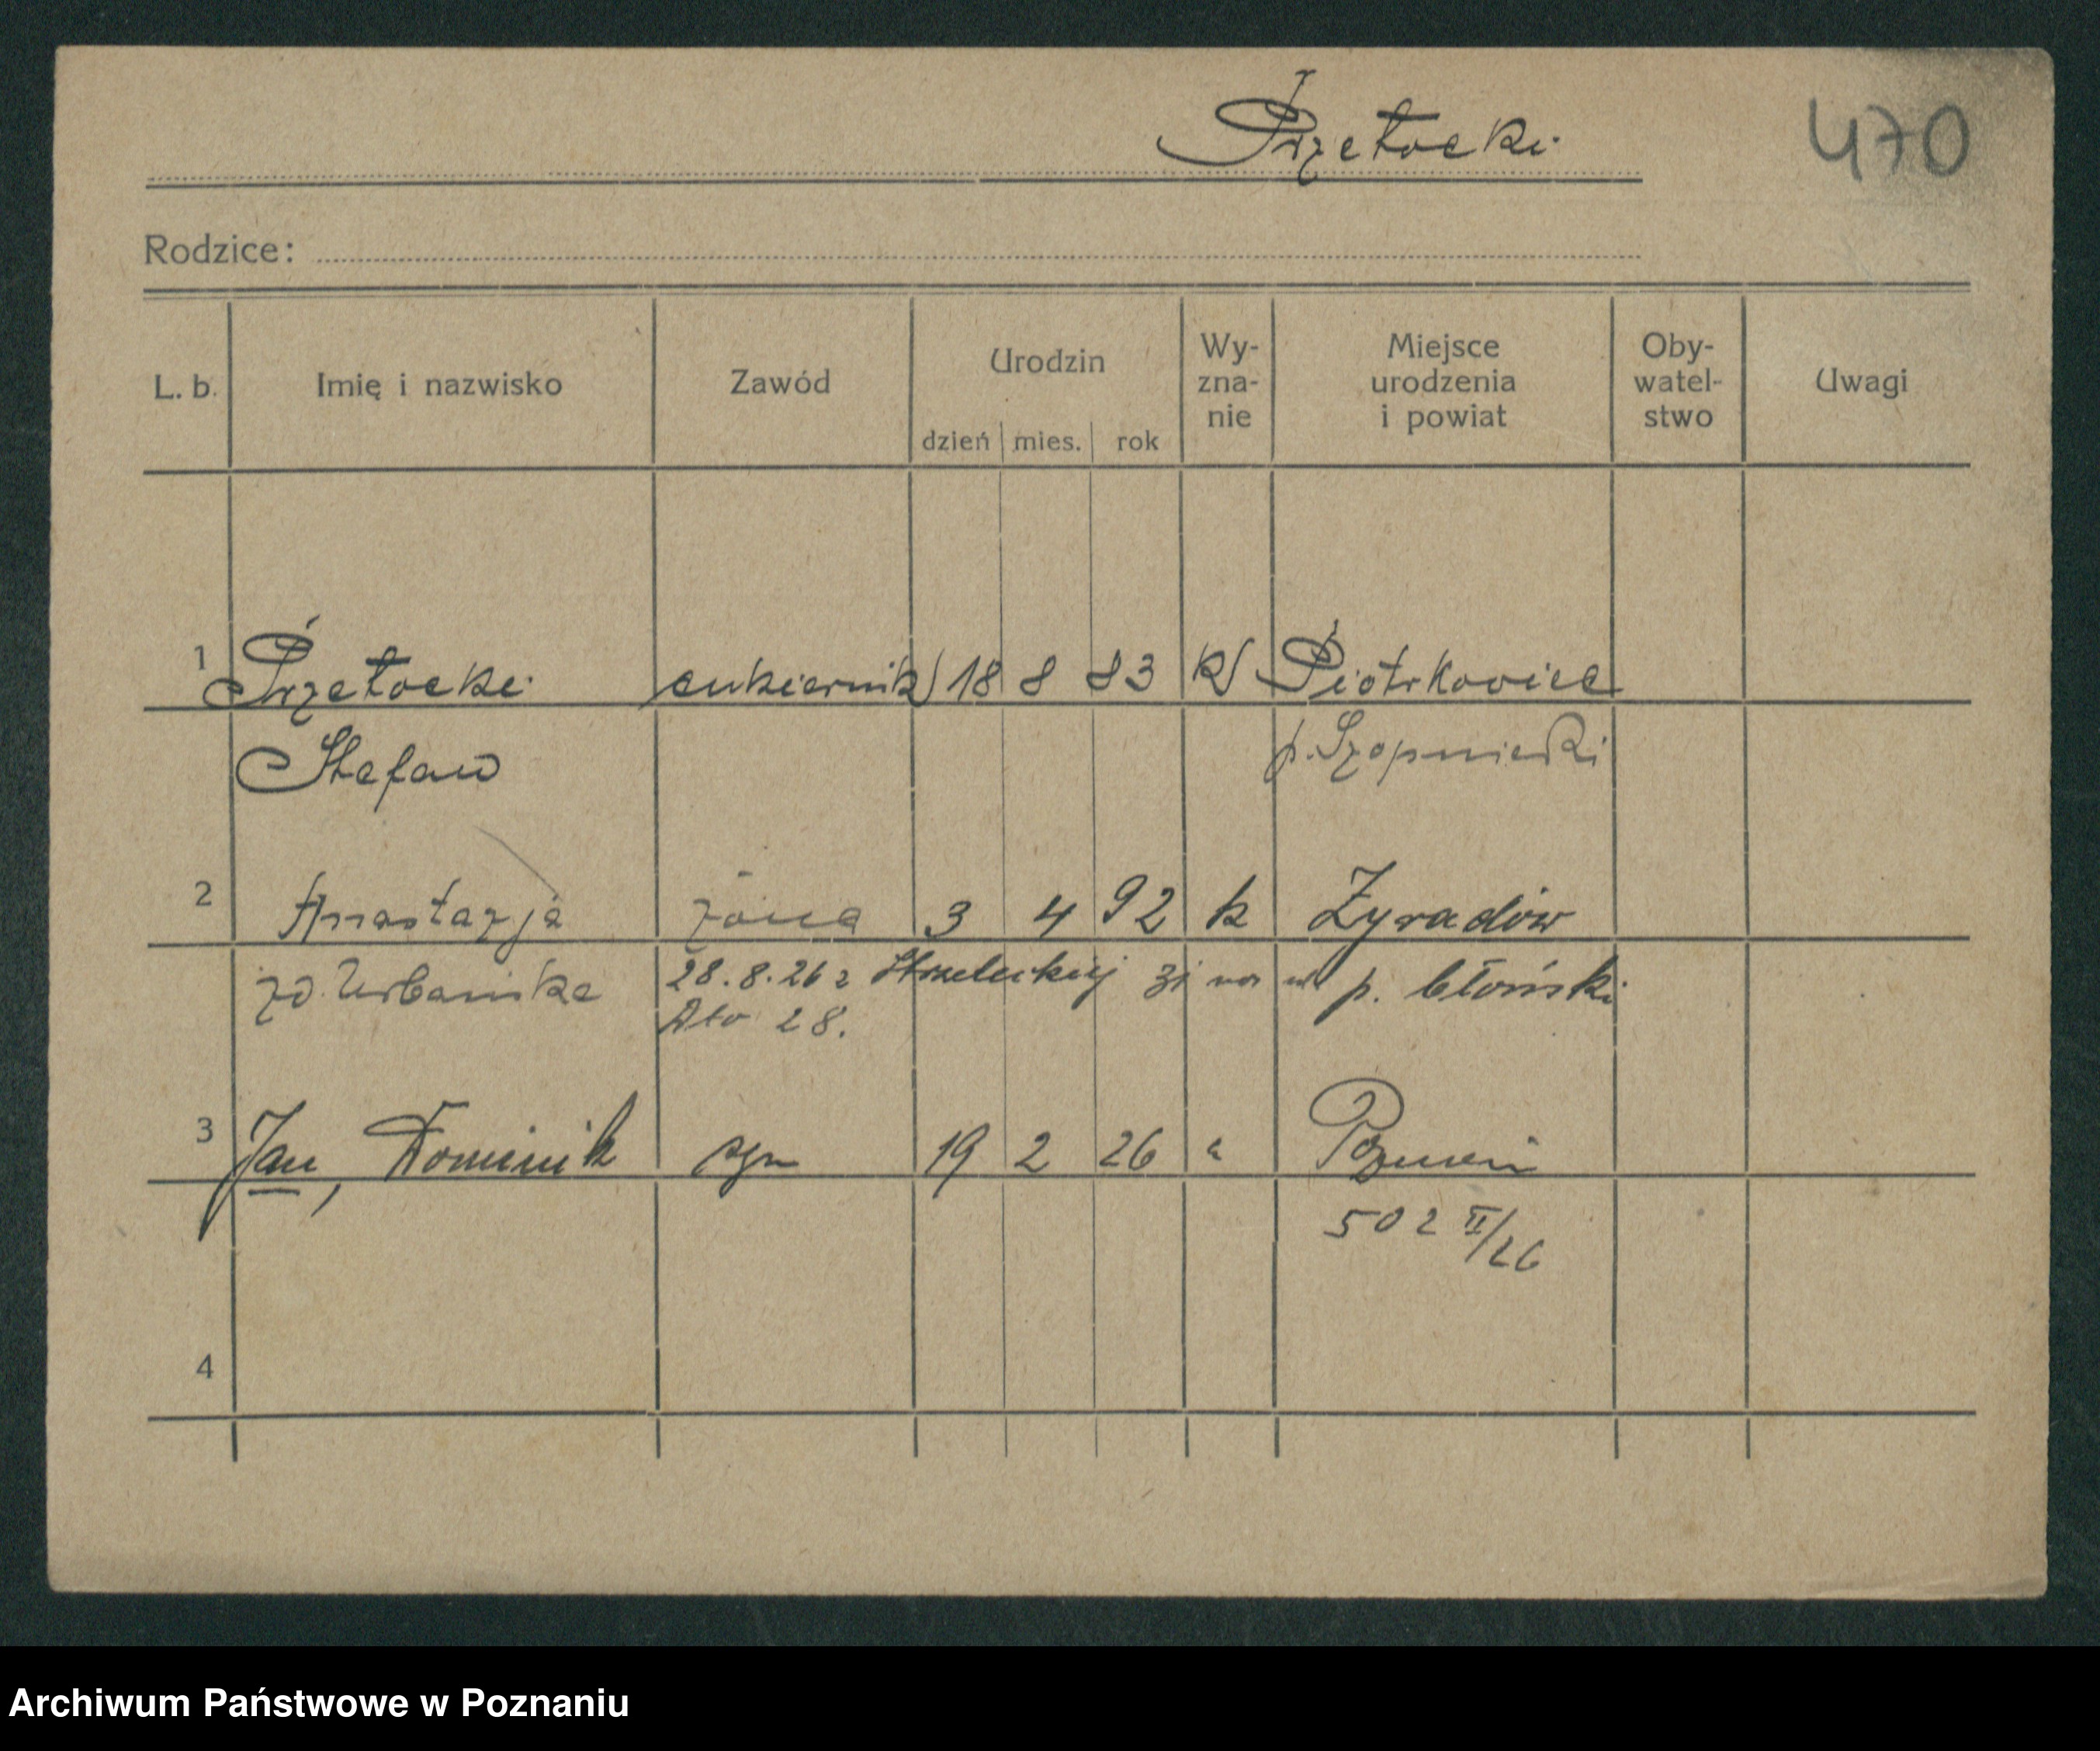 Przetocki
470
Rodzice:
L. b. Imię i nazwisko Zawód Urodzin dzień mies. rok Wy-zna-nie Miejsce urodzenia i powiat Oby-watel-stwo Uwagi
1 Przetocki cukiernik 18 8 83 k Piotrkowice
Stefan p.
2 Anastazja żona 3 4 92 k Żyradów
zd. Urbańska 28.8.26 z Strzeleckiej 31 na p. błoński
28.
3 Jan, Dominik syn 19 2 26 Poznań
502 II/26
4
Archiwum Państwowe w Poznaniu